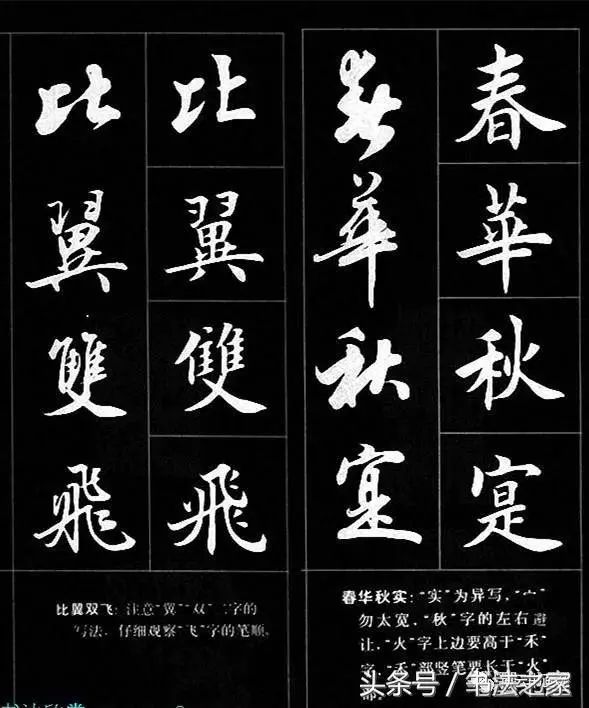 春華秋寔
春華秋寔
比翼雙飛
比翼雙飛
春华秋实:“实”为异写,“宀”
勿太宽,“秋”字的左右避
让,“火”字上边要高于“禾”
字,“禾”部竖笔要长于“火”
部。
比翼双飞:注意“翼”“双”二字的
写法,仔细观察“飞”字的笔顺。
头条号/书法之家